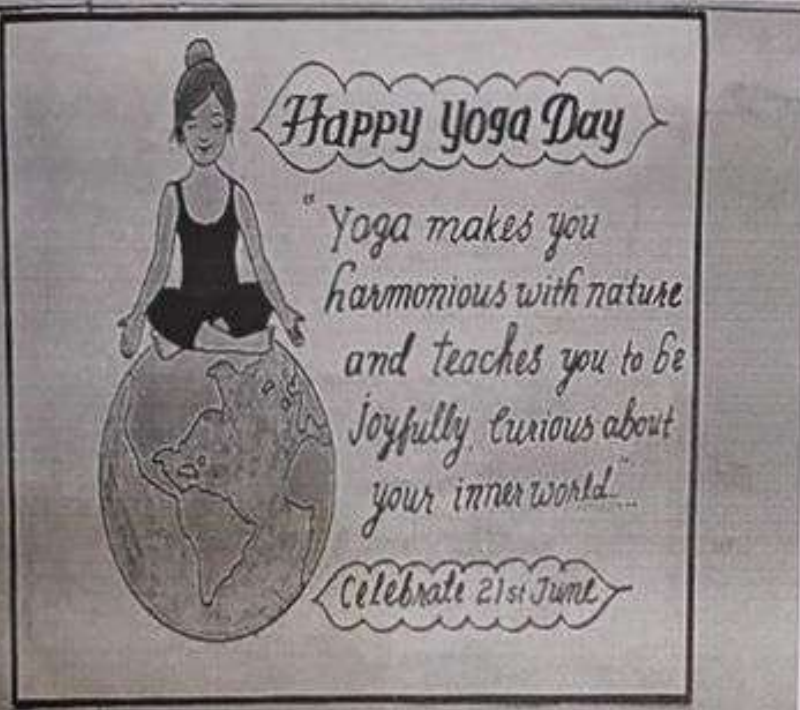 Happy Yoga Day
"Yoga makes you
harmonious with nature
and teaches you to be
joyfully, Curious about
your inner world."...
Celebrate 21st June